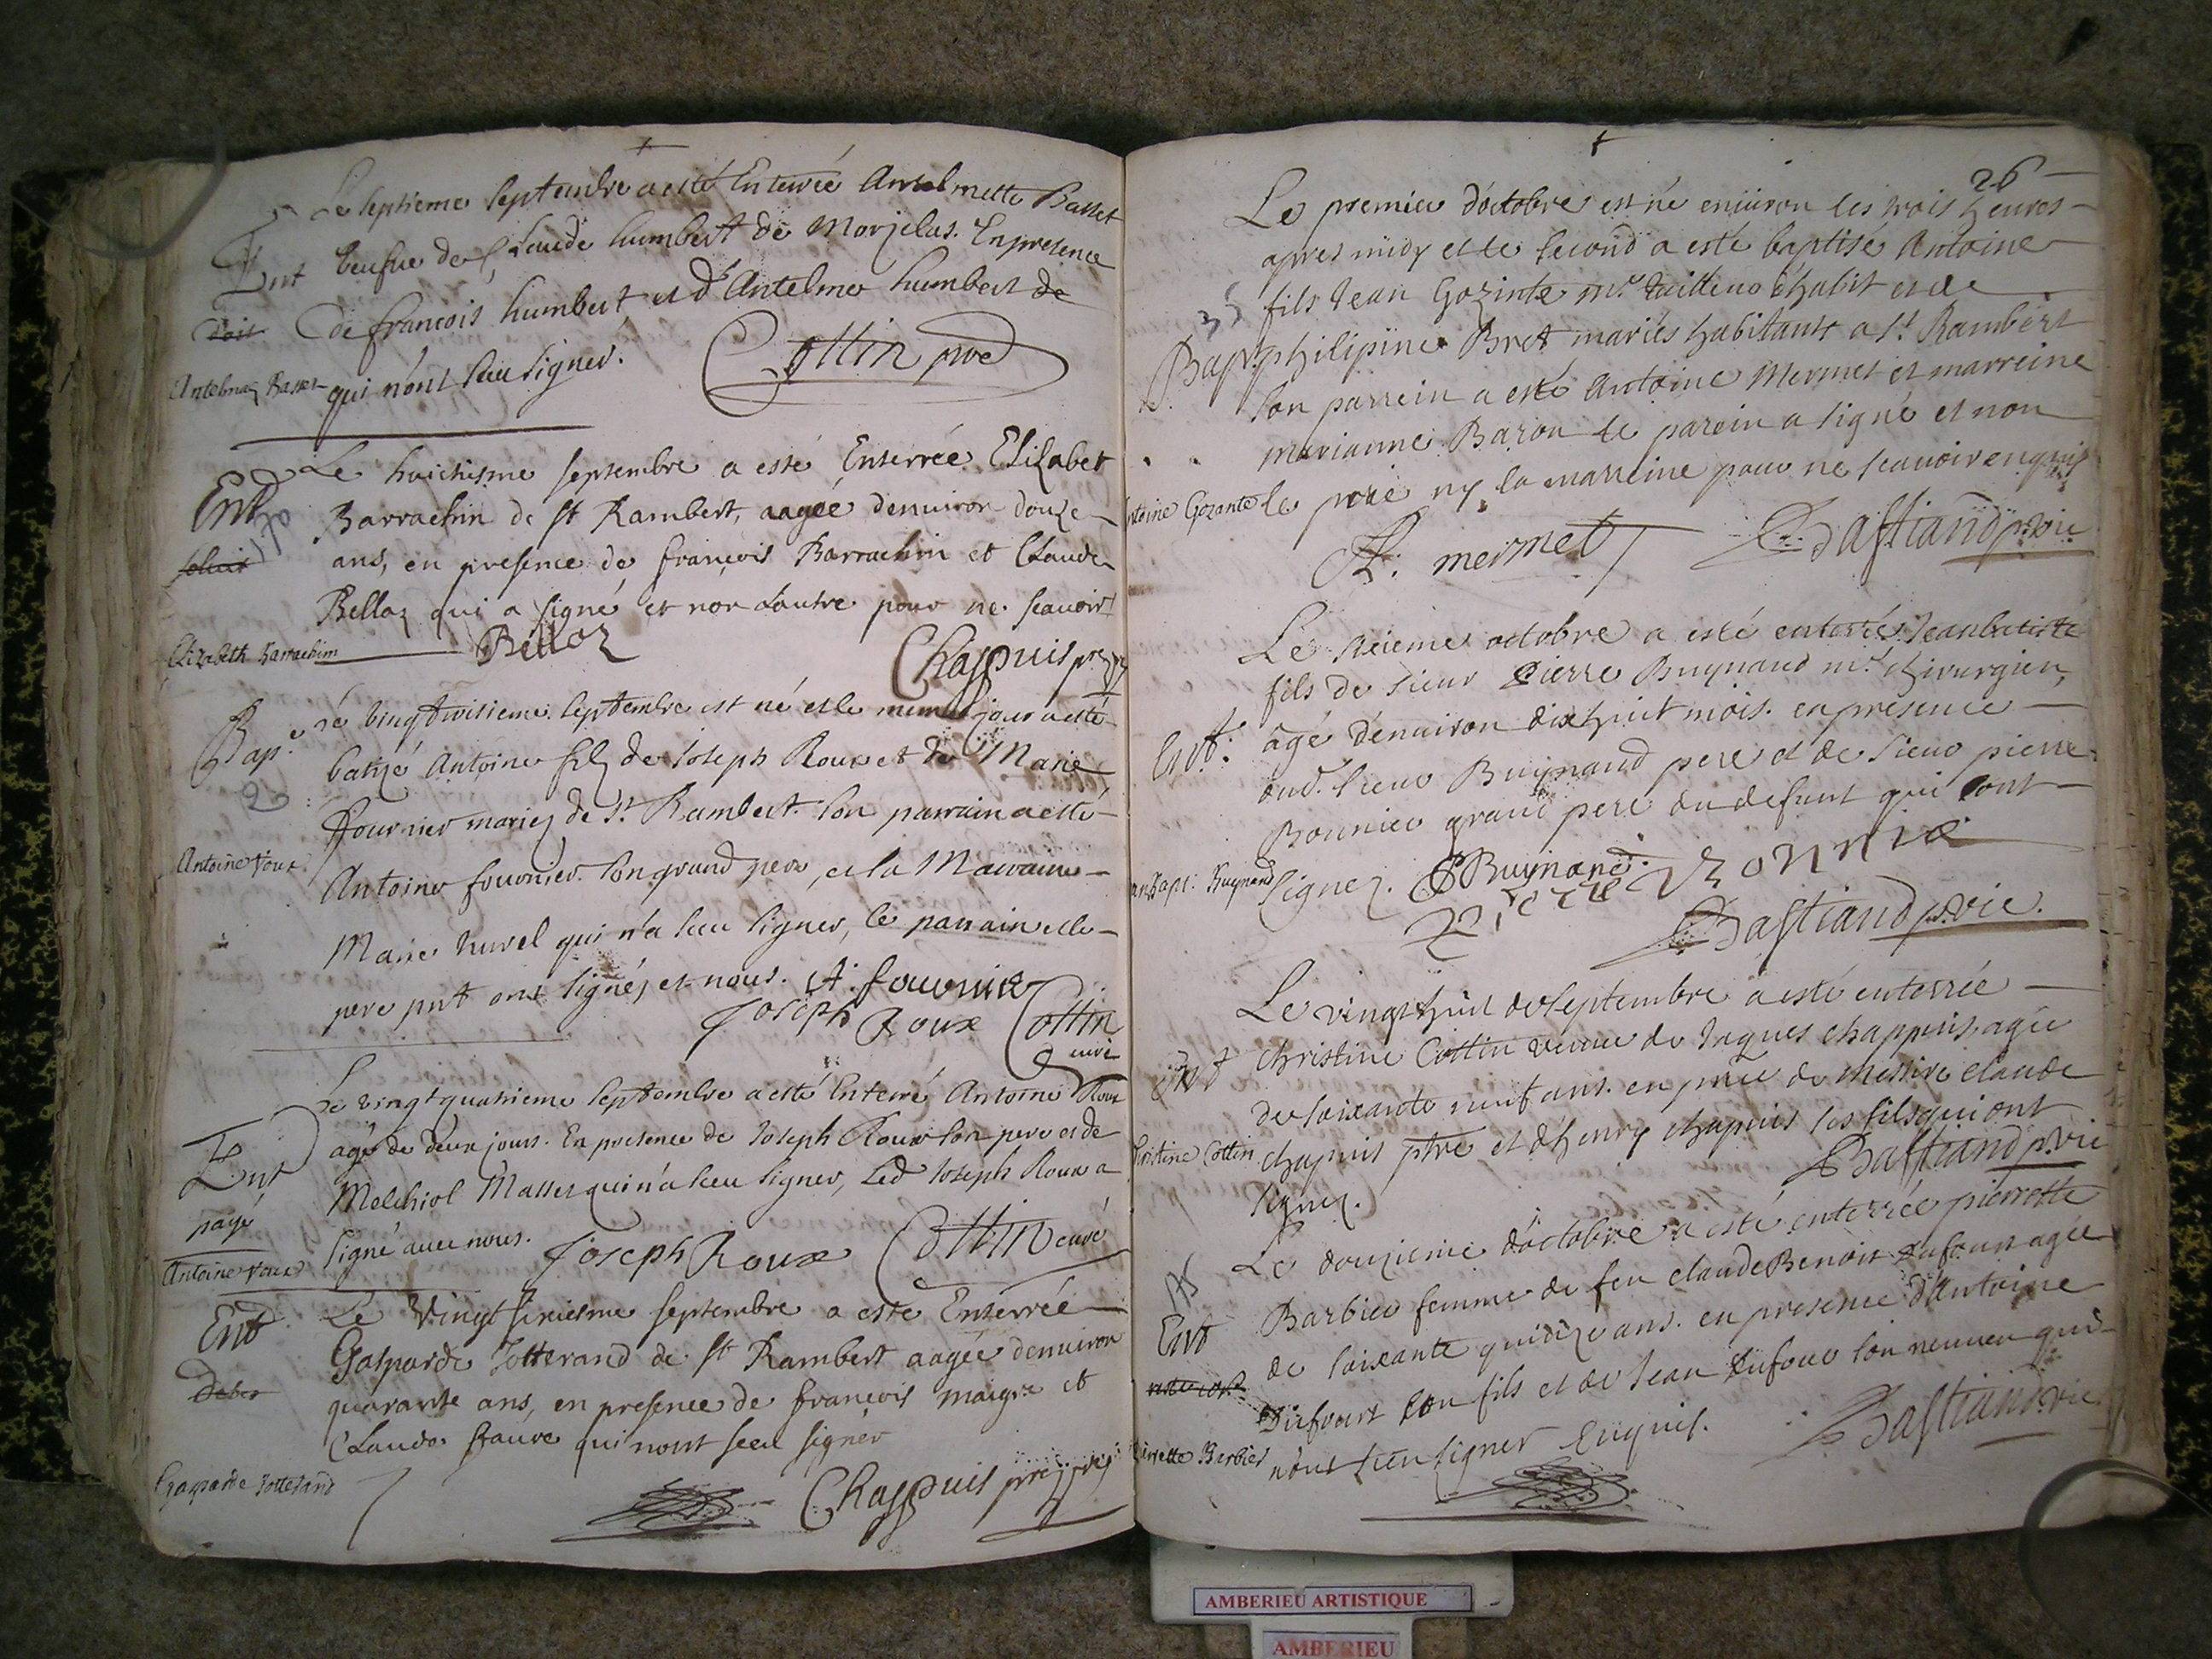 Le septieme septembre a esté Enterrée Antelmette Basset
Ent
veufue de Claude humbert de Morgelas. En presence
doit
de francois humbert et d'Antelme humbert de
Antelma Basset
qui n'ont sceu signer.
Cottin pre
Le huictiesme septembre a esté Enterrée Elizabet
Ent
170
Barrachin de St Rambert, aagée denuiron douze
ans, en presence de françois Barrachin et Claude
Belloz qui a signé et non l'autre pour ne scauoir
Elizabeth Barrachin
Belloz
Chappuis
Le vingt troisieme septembre est né et le meme jour a esté
Bap.e
batizé Antoine fils de Joseph Roux et de Marie
20
ffournier mariez de St Rambert. Son parrain a esté
Antoine Roux
Antoine fournier son grand pere, et la Marraine
Marie Juvel qui n'a sceu signer, le parrain et le
pere pnt ont signés et nous. A. fournier
Joseph Roux
Cottin
curé
Le vingt quatrieme septembre a esté Enterré Antoine Roux
agé de deux jours. En presence de Joseph Roux son pere et de
Ent
Melchiol Masset qui n'a sceu signer, Led Joseph Roux a
payé
signé auec nous.
Joseph Roux
Cottin curé
Antoine Roux
Le Vingt sixiesme septembre a este Enterrée
Ent
Gasparde Jotterand de St Rambert aagée denuiron
debet
quarante ans, en presence de françois maigre et
Claude faure qui nont sceu signer
Gasparde Jotterand
Chappuis
26
Le premier d'octobre est né enuiron les trois heures
apres midy et le second a esté baptisé Antoine
35
fils Jean Gozinte mr. tailleur d'habit et de
Bapt.
philipine Bret mariés habitants a St Rambert
son parrein a esté Antoine Mermet et marreine
marianne Baron le parein a signé et non
Antoine Gozante
le pere ny la marreine pour ne scauoir enquis
A. mermet
Bastiand p. vic
Le sixieme octobre a esté enterré Jean batiste
fils de sieur Pierre Buynand mr. chirurgien,
Ent.
agé d'enuiron dixhuit mois. en presence
dud. sieur Buynand pere et de sieur pierre
Bonnier grand pere du defunt qui sont
Jean Bapt. Buynand
signez.
P Buynand
pierre Bonnie
Bastiand p. vic.
Le vingt huit de septembre a esté enterrée
Ent
christine Cottin veuue de Jaques chappuis, agée
de soixante neuf ans. en pnce de messire claude
Christine Cottin
chapuis ptre et d'henry chapuis ses fils qui ont
signez.
Bastiand p. vic
Le douzieme d'octobre a esté enterrée pierrette
175
Barbier femme de feu claude Benoit dufour agée
Ent
de soixante quinze ans. en presence d'Antoine
Dufour son fils et de Jean dufour son neueu qui
Pierrette Barbier
n'ont sceu signer Enquis.
Bastiand p. vic
AMBERIEU ARTISTIQUE
AMBERIEU